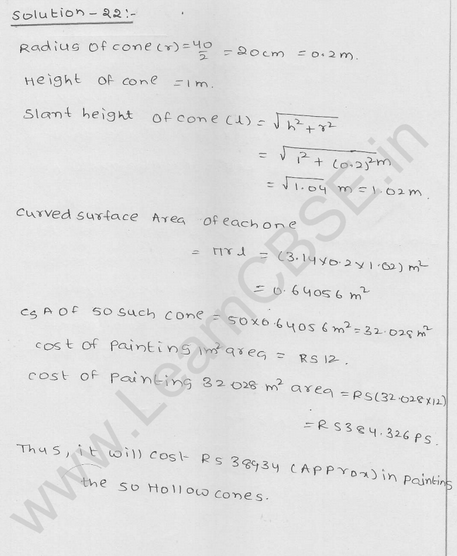 Solution-22:-
Radius of cone(r) = 40/2 = 20cm = 0.2m.
Height of cone = 1m.
Slant height of cone (l) = √h²+r²
= √1² + (0.2)² m
= √1.04 m = 1.02m.
Curved surface Area of each one
= πrl = (3.14×0.2×1.02) m²
= 0.64056 m²
CSA of 50 such cone = 50×0.64056m² = 32.028m²
cost of painting 1m² area = RS 12.
cost of painting 32.028 m² area = RS(32.028×12)
= RS 384.326 PS.
Thus, it will cost RS 38434 (APProx) in painting
the 50 Hollow cones.
www.LearnCBSE.in